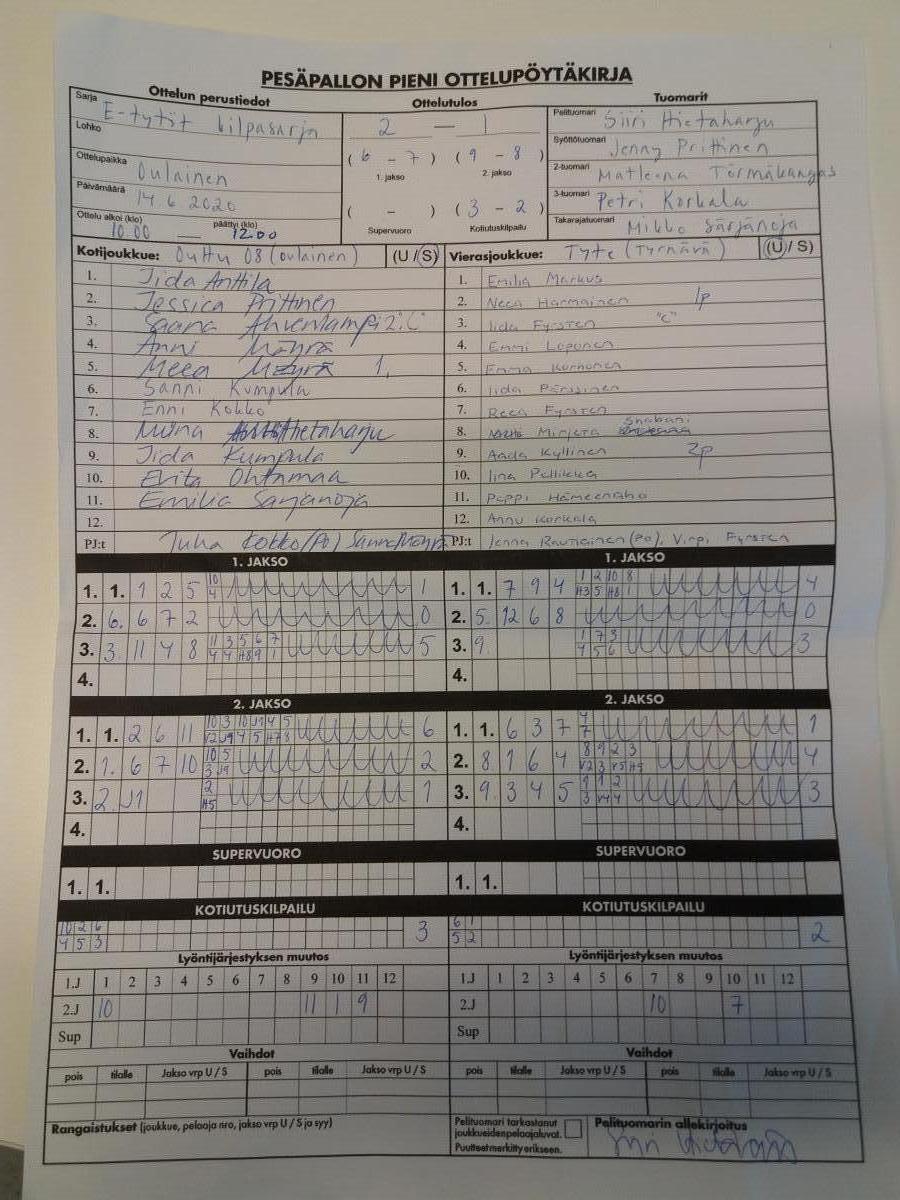 PESÄPALLON PIENI OTTELUPÖYTÄKIRJA
Ottelun perustiedot Ottelutulos Tuomarit
Sarja E-tytöt kilpasarja
Lohko
Ottelupaikka Oulainen
Päivämäärä 14.6 2020
Ottelu alkoi (klo) 10.00 — päättyi (klo) 12.00
2 — 1
( 6 - 7 ) ( 9 - 8 )
1. jakso 2. jakso
( - ) ( 3 - 2 )
Supervuoro Kotiutuskilpailu
Pelituomari Siiri Hietaharju
Syöttötuomari Jenny Prittinen
2-tuomari Matleena Törmäkangas
3-tuomari Petri Korkala
Takarajatuomari Mikko Särjänoja
Kotijoukkue: OuHu 08 (Oulainen) (U / S)
1. Iida Anttila
2. Jessica Prittinen
3. Saana Ahvenlampi 2. C
4. Anni Mäyrä
5. Meea Mäyrä 1,
6. Sanni Kumpula
7. Enni Kokko
8. Miina Hietaharju
9. Iida Kumpula
10. Erita Ohtamaa
11. Emilia Särjänoja
12.
PJ:t Juha Kokko (Po) Sanna Mäyrä
Vierasjoukkue: TyTe (Tyrnävä) (U / S)
1. Emilia Markus
2. Neea Harmainen 1p
3. Iida Fyrsten "C"
4. Emmi Loponen
5. Emma Korhonen
6. Iida Pärssinen
7. Reea Fyrsten
8. Minjera Shabani
9. Aada Kyllinen 2p
10. Iina Pulkka
11. Peppi Hämeenaho
12. Annu Korkala
PJ:t Jenna Rautiainen (Po), Virpi Fyrsten
1. JAKSO 1. JAKSO
1. 1. 1 2 5 10 4 1
2. 6. 6 7 2 0
3. 3. 11 4 8 11 3 5 6 7 4 4 H8 9 1 5
4.
1. 1. 7 9 4 1 2 10 8 H3 5 H8 1 4
2. 5. 12 6 8 0
3. 9. 1 7 3 4 5 6 3
4.
2. JAKSO 2. JAKSO
1. 1. 2 6 11 6
2. 1. 6 7 10 10 5 3 J9 2
3. 2. J1 2 H5 1
4.
1. 1. 6 3 7 4 7 1
2. 8 1 6 4 8 9 2 3 V2 3 V5 H9 4
3. 9. 3 4 5 1 1 2 3 V4 4 3
4.
SUPERVUORO SUPERVUORO
1. 1. 1. 1.
KOTIUTUSKILPAILU KOTIUTUSKILPAILU
10 2 6 3 6 1 2
4 5 3 5 2
Lyöntijärjestyksen muutos Lyöntijärjestyksen muutos
1.J 1 2 3 4 5 6 7 8 9 10 11 12 1.J 1 2 3 4 5 6 7 8 9 10 11 12
2.J 10 11 1 9 2.J 10 7
Sup Sup
Vaihdot Vaihdot
pois tilalle Jakso vrp U / S pois tilalle Jakso vrp U / S pois tilalle Jakso vrp U / S pois tilalle Jakso vrp U / S
Rangaistukset (joukkue, pelaaja nro, jakso vrp U / S ja syy)
Pelituomari tarkastanut
joukkueiden pelaajaluvat.
Puutteet merkitty erikseen.
Pelituomarin allekirjoitus